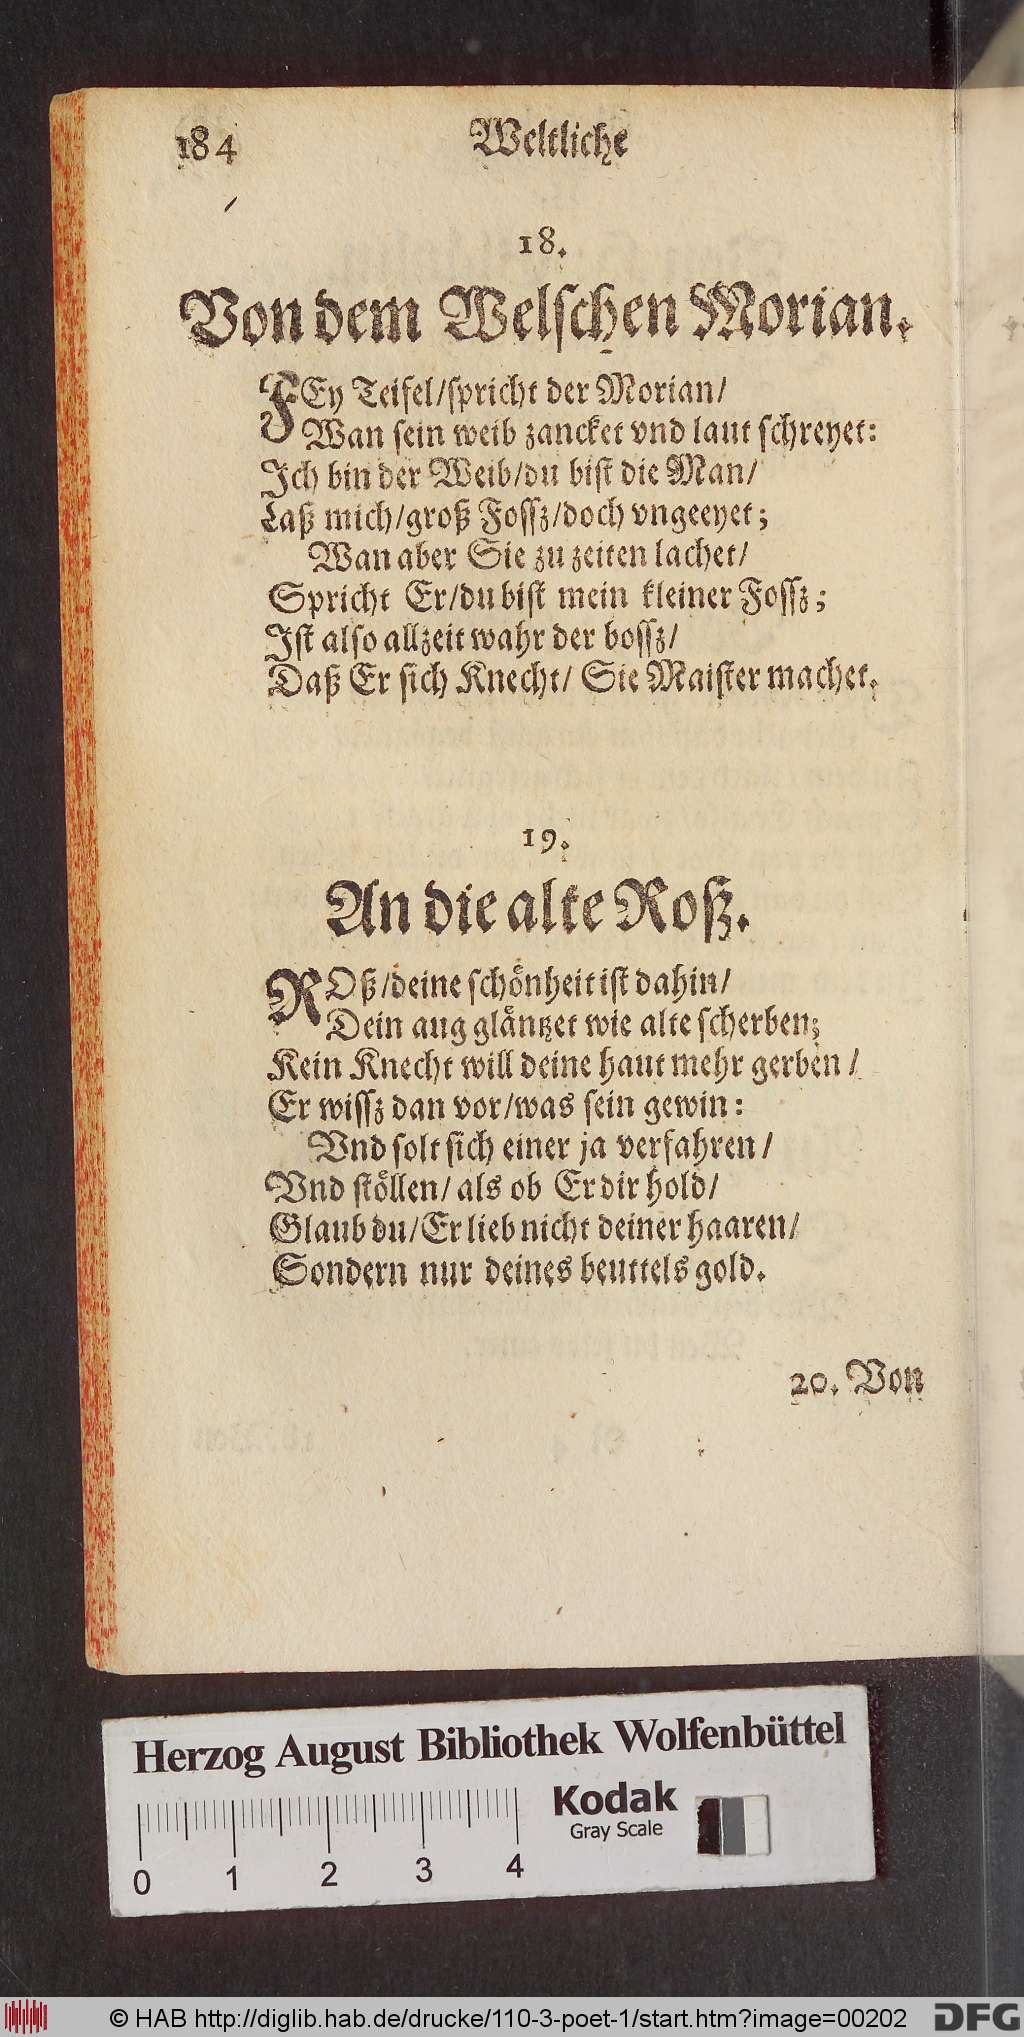 184 Weltliche
18.
Von dem Welschen Morian.
FEy Teifel/spricht der Morian/
Wan sein weib zancket vnd laut schreyet:
Ich bin der Weib/du bist die Man/
Laß mich/groß Fossz/doch vngeeyet;
Wan aber Sie zu zeiten lachet/
Spricht Er/du bist mein kleiner Fossz;
Ist also allzeit wahr der bossz/
Daß Er sich Knecht/ Sie Maister machet.
19.
An die alte Roß.
ROß/deine schönheit ist dahin/
Dein aug gläntzet wie alte scherben;
Kein Knecht will deine haut mehr gerben/
Er wissz dan vor/was sein gewin:
Vnd solt sich einer ja verfahren/
Vnd stöllen/ als ob Er dir hold/
Glaub du/Er lieb nicht deiner haaren/
Sondern nur deines beuttels gold.
20. Von
Herzog August Bibliothek Wolfenbüttel
Kodak
Gray Scale
0 1 2 3 4
© HAB http://diglib.hab.de/drucke/110-3-poet-1/start.htm?image=00202
DFG